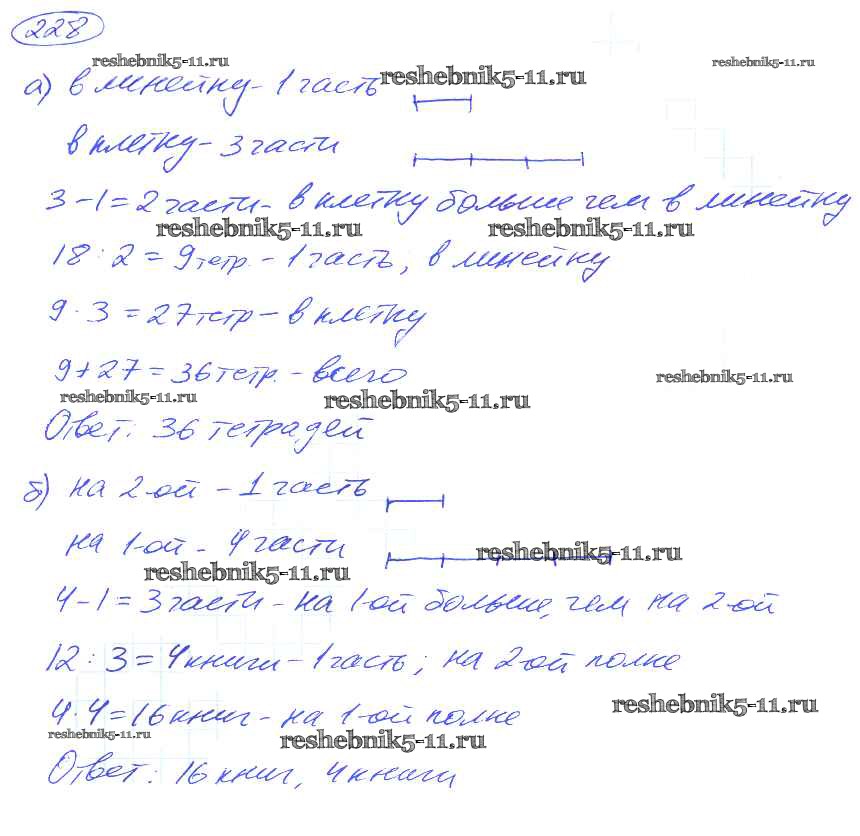 228
reshebnik5-11.ru
reshebnik5-11.ru
reshebnik5-11.ru
а) в линейку - 1 часть
в клетку - 3 части
3 - 1 = 2 части - в клетку больше чем в линейку
reshebnik5-11.ru
reshebnik5-11.ru
18 : 2 = 9 тетр. - 1 часть, в линейку
9 · 3 = 27 тетр - в клетку
9 + 27 = 36 тетр. - всего
reshebnik5-11.ru
reshebnik5-11.ru
reshebnik5-11.ru
Ответ: 36 тетрадей
б) на 2-ой - 1 часть
на 1-ой - 4 части
reshebnik5-11.ru
reshebnik5-11.ru
4 - 1 = 3 части - на 1-ой больше, чем на 2-ой
12 : 3 = 4 книги - 1 часть; на 2-ой полке
4 · 4 = 16 книг - на 1-ой полке
reshebnik5-11.ru
reshebnik5-11.ru
reshebnik5-11.ru
Ответ: 16 книг, 4 книги